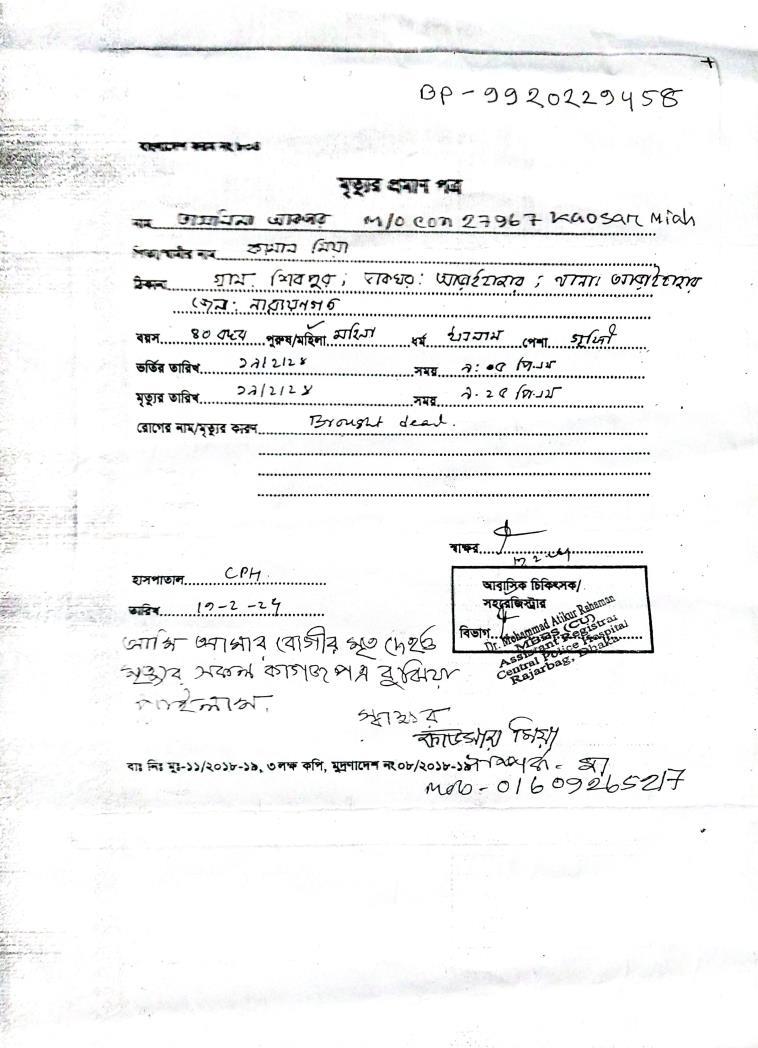 BP-9920229458
বাংলাদেশ ফরম নং ৮০৪
মৃত্যুর প্রমাণ পত্র
নাম আক্তার M/O Con 27967 Kaosar Miah
পিতা/স্বামীর নাম মিয়া
ঠিকানা গ্রাম: শিবপুর; ডাকঘর: আড়াইহাজার; থানা: আড়াইহাজার
জেলা: নারায়ণগঞ্জ
বয়স ৪০ বৎসর পুরুষ/মহিলা মহিলা ধর্ম ইসলাম পেশা গৃহিণী
ভর্তির তারিখ ১৯/২/২৪ সময় ৯:০৫ পি.এম
মৃত্যুর তারিখ ১৯/২/২৪ সময় ৯.২৫ পি.এম
রোগের নাম/মৃত্যুর কারণ Brought dead.
স্বাক্ষর
হাসপাতাল CPH
আবাসিক চিকিৎসক/
সহঃরেজিস্ট্রার
তারিখ 19-2-24
বিভাগ
Dr. Mohammad Atikur Rahaman
MBBS (CU)
Assistant Registrar
Central Police Hospital
Rajarbag, Dhaka.
আমি আমার রোগীর মৃত দেহ ও
মৃত্যুর সকল কাগজ পত্র বুঝিয়া
পাইলাম.
স্বাক্ষর
কাউসার মিয়া
বাঃ নিঃ মুঃ-১১/২০১৮-১৯, ৩ লক্ষ কপি, মুদ্রণাদেশ নং ০৮/২০১৮-১৯
সম্পর্ক - মা
Mob - 01609265217